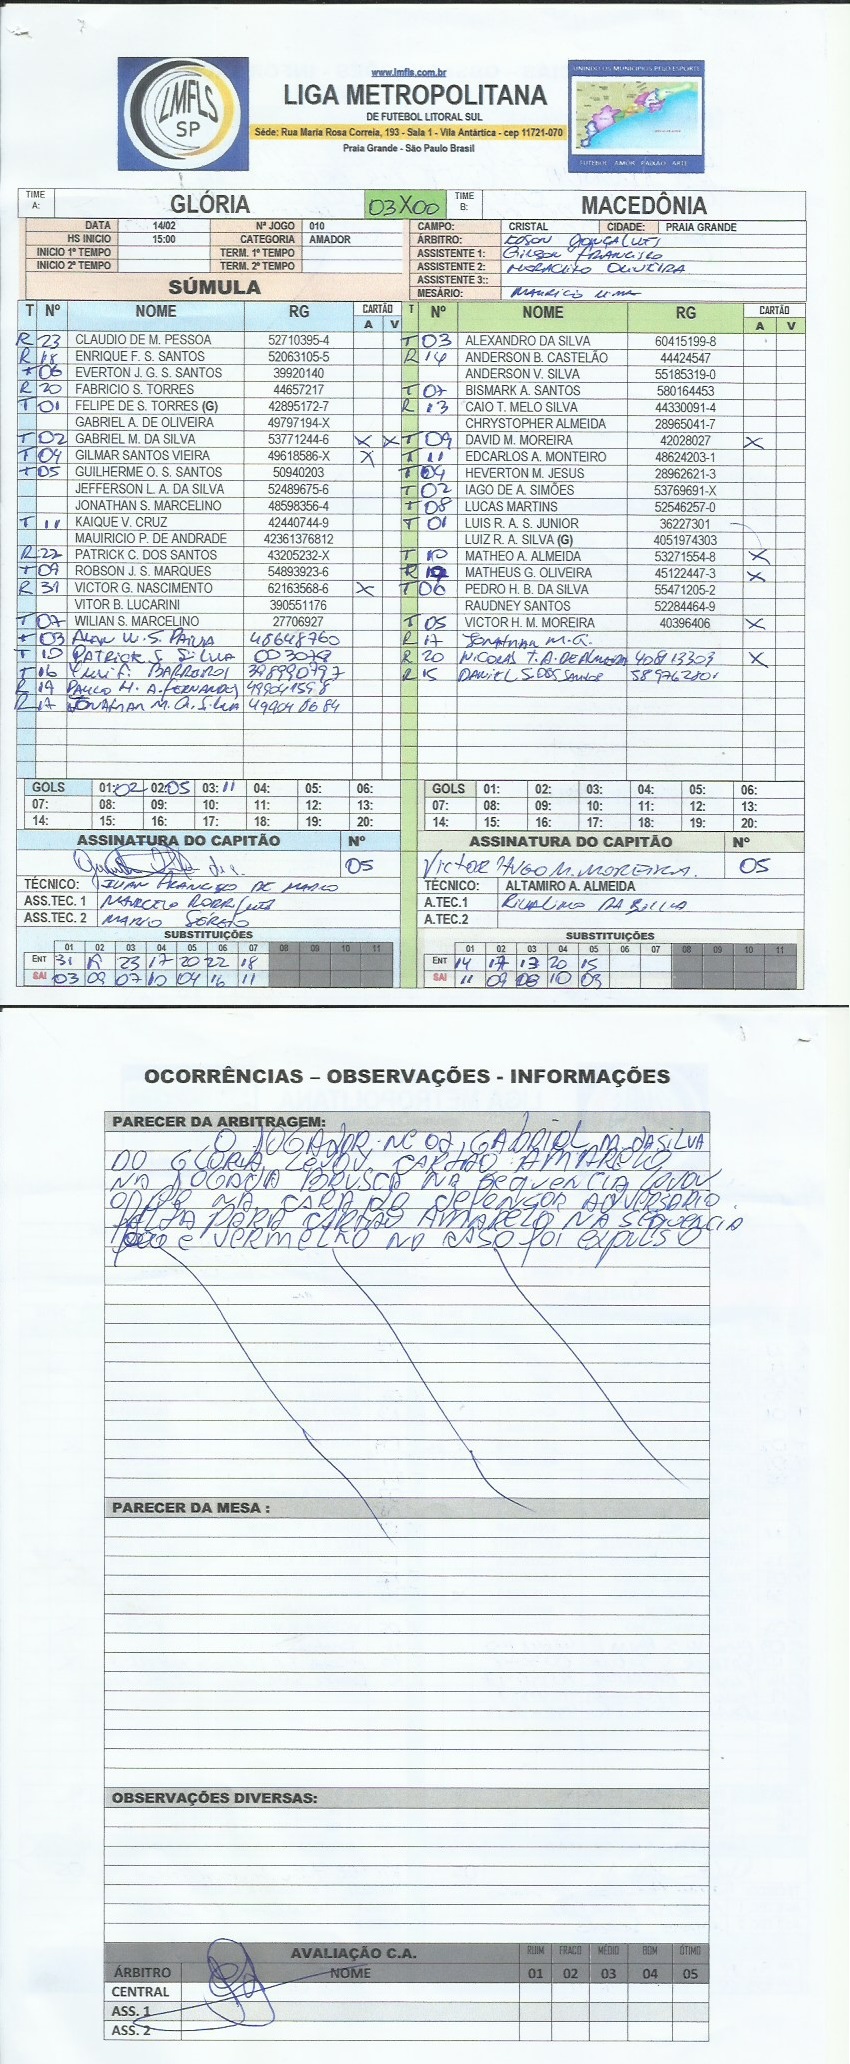 www.lmfls.com.br
LIGA METROPOLITANA
DE FUTEBOL LITORAL SUL
Séde: Rua Maria Rosa Correia, 193 - Sala 1 - Vila Antártica - cep 11721-070
Praia Grande - São Paulo Brasil
LMFLS
SP
UNINDO OS MUNICIPIOS PELO ESPORTE
FUTEBOL AMOR PAIXÃO ARTE
TIME A: GLÓRIA 03X00 TIME B: MACEDÔNIA
DATA 14/02 Nº JOGO 010 CAMPO: CRISTAL CIDADE: PRAIA GRANDE
HS INICIO 15:00 CATEGORIA AMADOR ÁRBITRO: EDSON GONÇALVES
INICIO 1º TEMPO TERM. 1º TEMPO ASSISTENTE 1: GILSON FRANCISCO
INICIO 2º TEMPO TERM. 2º TEMPO ASSISTENTE 2: HERACLITO OLIVEIRA
ASSISTENTE 3::
SÚMULA MESÁRIO: MAURICIO LIMA
T Nº NOME RG CARTÃO A V T Nº NOME RG CARTÃO A V
R 23 CLAUDIO DE M. PESSOA 52710395-4 T 03 ALEXANDRO DA SILVA 60415199-8
R 18 ENRIQUE F. S. SANTOS 52063105-5 R 14 ANDERSON B. CASTELÃO 44424547
T 06 EVERTON J. G. S. SANTOS 39920140 ANDERSON V. SILVA 55185319-0
R 20 FABRICIO S. TORRES 44657217 T 07 BISMARK A. SANTOS 580164453
T 01 FELIPE DE S. TORRES (G) 42895172-7 R 13 CAIO T. MELO SILVA 44330091-4
GABRIEL A. DE OLIVEIRA 49797194-X CHRYSTOPHER ALMEIDA 28965041-7
T 02 GABRIEL M. DA SILVA 53771244-6 X X T 09 DAVID M. MOREIRA 42028027 X
T 04 GILMAR SANTOS VIEIRA 49618586-X X T 11 EDCARLOS A. MONTEIRO 48624203-1
T 05 GUILHERME O. S. SANTOS 50940203 T 04 HEVERTON M. JESUS 28962621-3
JEFFERSON L. A. DA SILVA 52489675-6 T 02 IAGO DE A. SIMÕES 53769691-X
JONATHAN S. MARCELINO 48598356-4 T 08 LUCAS MARTINS 52546257-0
T 11 KAIQUE V. CRUZ 42440744-9 T 01 LUIS R. A. S. JUNIOR 36227301
MAUIRICIO P. DE ANDRADE 42361376812 LUIZ R. A. SILVA (G) 4051974303
R 22 PATRICK C. DOS SANTOS 43205232-X T 10 MATHEO A. ALMEIDA 53271554-8 X
T 09 ROBSON J. S. MARQUES 54893923-6 R MATHEUS G. OLIVEIRA 45122447-3 X
R 31 VICTOR G. NASCIMENTO 62163568-6 X T 06 PEDRO H. B. DA SILVA 55471205-2
VITOR B. LUCARINI 390551176 RAUDNEY SANTOS 52284464-9
T 07 WILIAN S. MARCELINO 27706927 T 05 VICTOR H. M. MOREIRA 40396406 X
T 03 ALAN W. S. PAIVA 48648760 R 17 JONATHAN M.G.
T 10 PATRICK S. SILVA 003078 R 20 NICOLAS T. A. DE ALMEIDA 408113303 X
T 16 YURI F. BARREIROS 398990797 R 15 DANIEL S. DOS SANTOS
R 19 PAULO H. A. FERNANDES
R 17 JONATHAN M. A. SILVA
GOLS 01: 02 02: 05 03: 11 04: 05: 06: GOLS 01: 02: 03: 04: 05: 06:
07: 08: 09: 10: 11: 12: 13: 07: 08: 09: 10: 11: 12: 13:
14: 15: 16: 17: 18: 19: 20: 14: 15: 16: 17: 18: 19: 20:
ASSINATURA DO CAPITÃO Nº ASSINATURA DO CAPITÃO Nº
05 VICTOR HUGO M. MOREIRA. 05
TÉCNICO: JUAN FRANCISCO DE TÉCNICO: ALTAMIRO A. ALMEIDA
ASS.TEC. 1 MARCELO RODRIGUES A.TEC.1 RIVALINO DA SILVA
ASS.TEC. 2 MARIO SERGIO A.TEC.2
SUBSTITUIÇÕES SUBSTITUIÇÕES
01 02 03 04 05 06 07 08 09 10 11 01 02 03 04 05 06 07 08 09 10 11
ENT 31 19 23 17 20 22 18 ENT 14 17 13 20 15
SAI 03 09 07 10 04 16 11 SAI 11 09 08 10 03
OCORRÊNCIAS – OBSERVAÇÕES - INFORMAÇÕES
PARECER DA ARBITRAGEM:
O JOGADOR Nº 02 GABRIEL M. DA SILVA
DO GLORIA LEVOU CARTÃO AMARELO
NA JOGADA BRUSCA NA SEQUENCIA
NA CARA DO DEFENSOR ADVERSARIO.
FALTA PARA CARTÃO AMARELO NA SEQUENCIA
e VERMELHO NO CASO foi expulso
PARECER DA MESA :
OBSERVAÇÕES DIVERSAS:
AVALIAÇÃO C.A. RUIM FRACO MÉDIO BOM ÓTIMO
ÁRBITRO NOME 01 02 03 04 05
CENTRAL
ASS. 1
ASS. 2